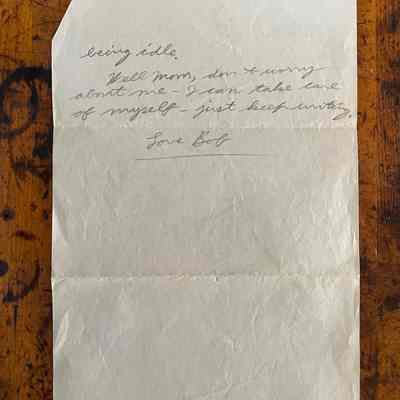 being idle.
Well Mom, don't worry
about me - I can take care
of myself - just keep writing.
Love Bob